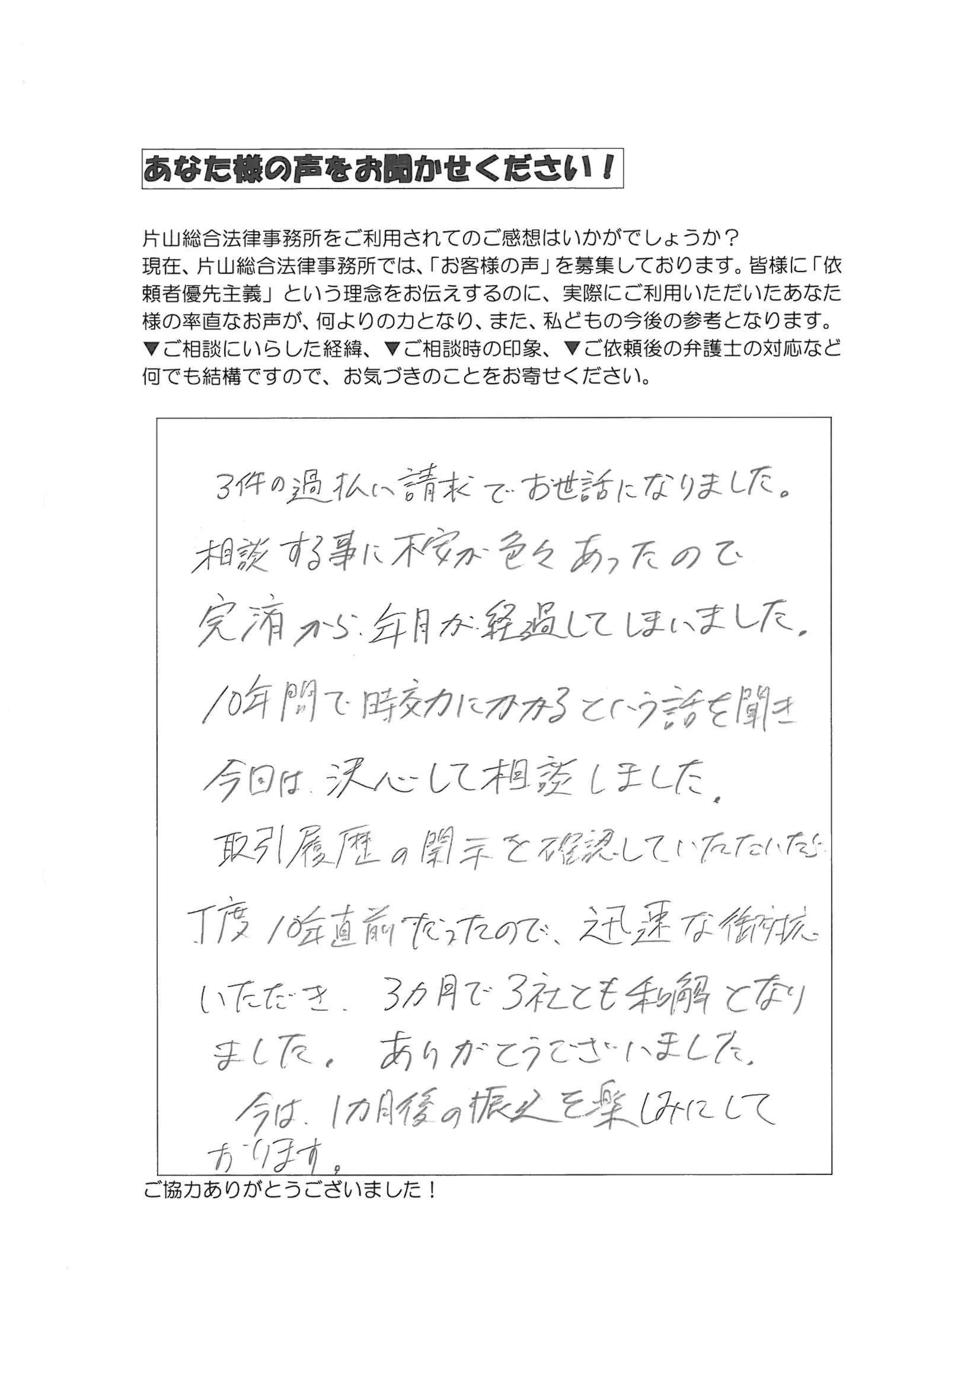 あなた様の声をお聞かせください！
片山総合法律事務所をご利用されてのご感想はいかがでしょうか？
現在、片山総合法律事務所では、「お客様の声」を募集しております。皆様に「依
頼者優先主義」という理念をお伝えするのに、実際にご利用いただいたあなた
様の率直なお声が、何よりの力となり、また、私どもの今後の参考となります。
▼ご相談にいらした経緯、▼ご相談時の印象、▼ご依頼後の弁護士の対応など
何でも結構ですので、お気づきのことをお寄せください。
3件の過払い請求でお世話になりました。
相談する事に不安が色々あったので
完済から、年月が経過してしまいました。
10年間で時効にかかるという話を聞き
今回は、決心して相談しました。
取引履歴の開示を確認していただいたら
丁度10年直前だったので、迅速な御対応
いただき、3カ月で3社とも和解となり
ました。ありがとうございました。
今は、1カ月後の振込を楽しみにして
おります。
ご協力ありがとうございました！